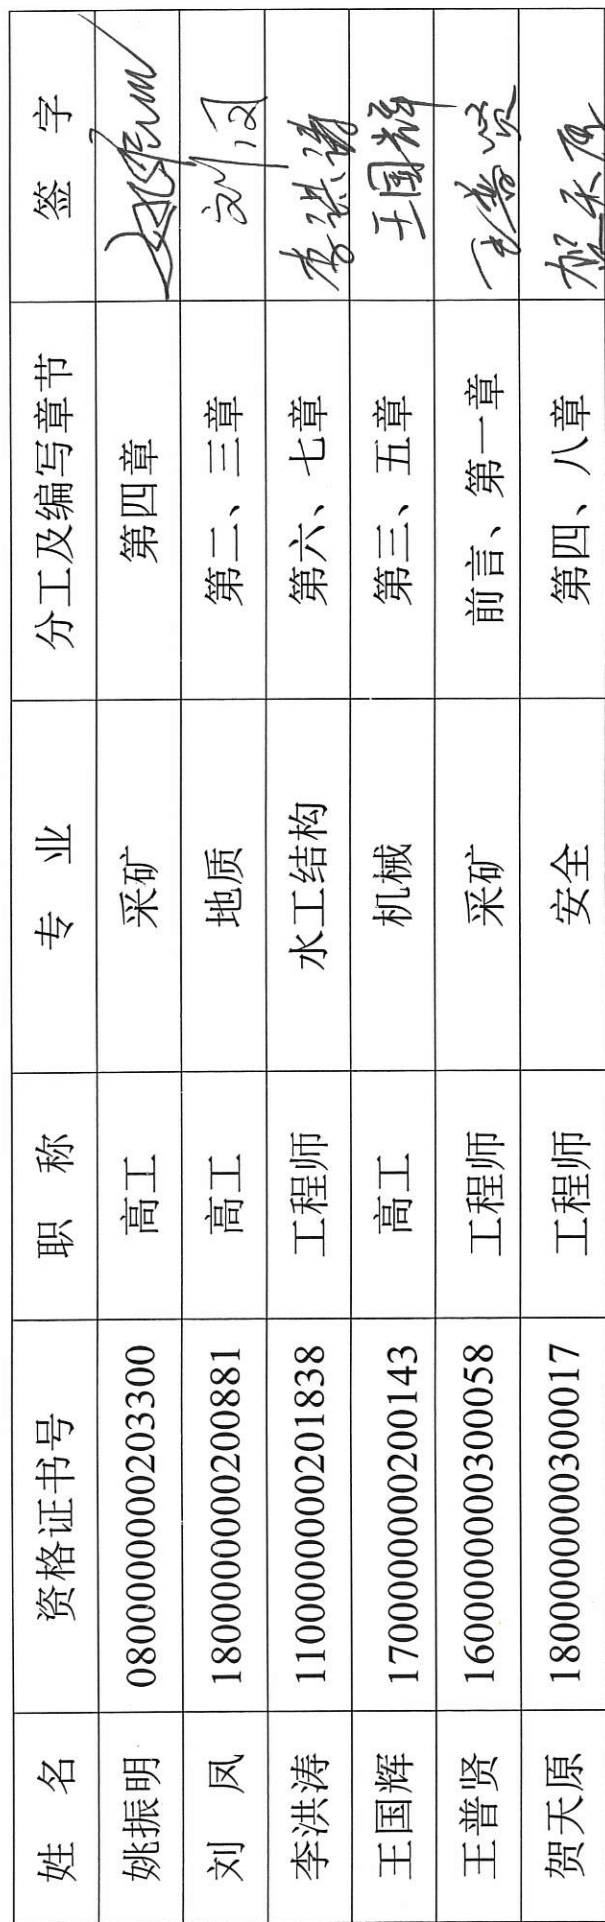 姓 名 资格证书号 职 称 专 业 分工及编写章节 签 字
姚振明 0800000000203300 高工 采矿 第四章
刘 凤 1800000000200881 高工 地质 第二、三章 刘凤
李洪涛 1100000000201838 工程师 水工结构 第六、七章 李洪涛
王国辉 1700000000200143 高工 机械 第三、五章 王国辉
王普贤 1600000000300058 工程师 采矿 前言、第一章 王普贤
贺天原 1800000000300017 工程师 安全 第四、八章 贺天原